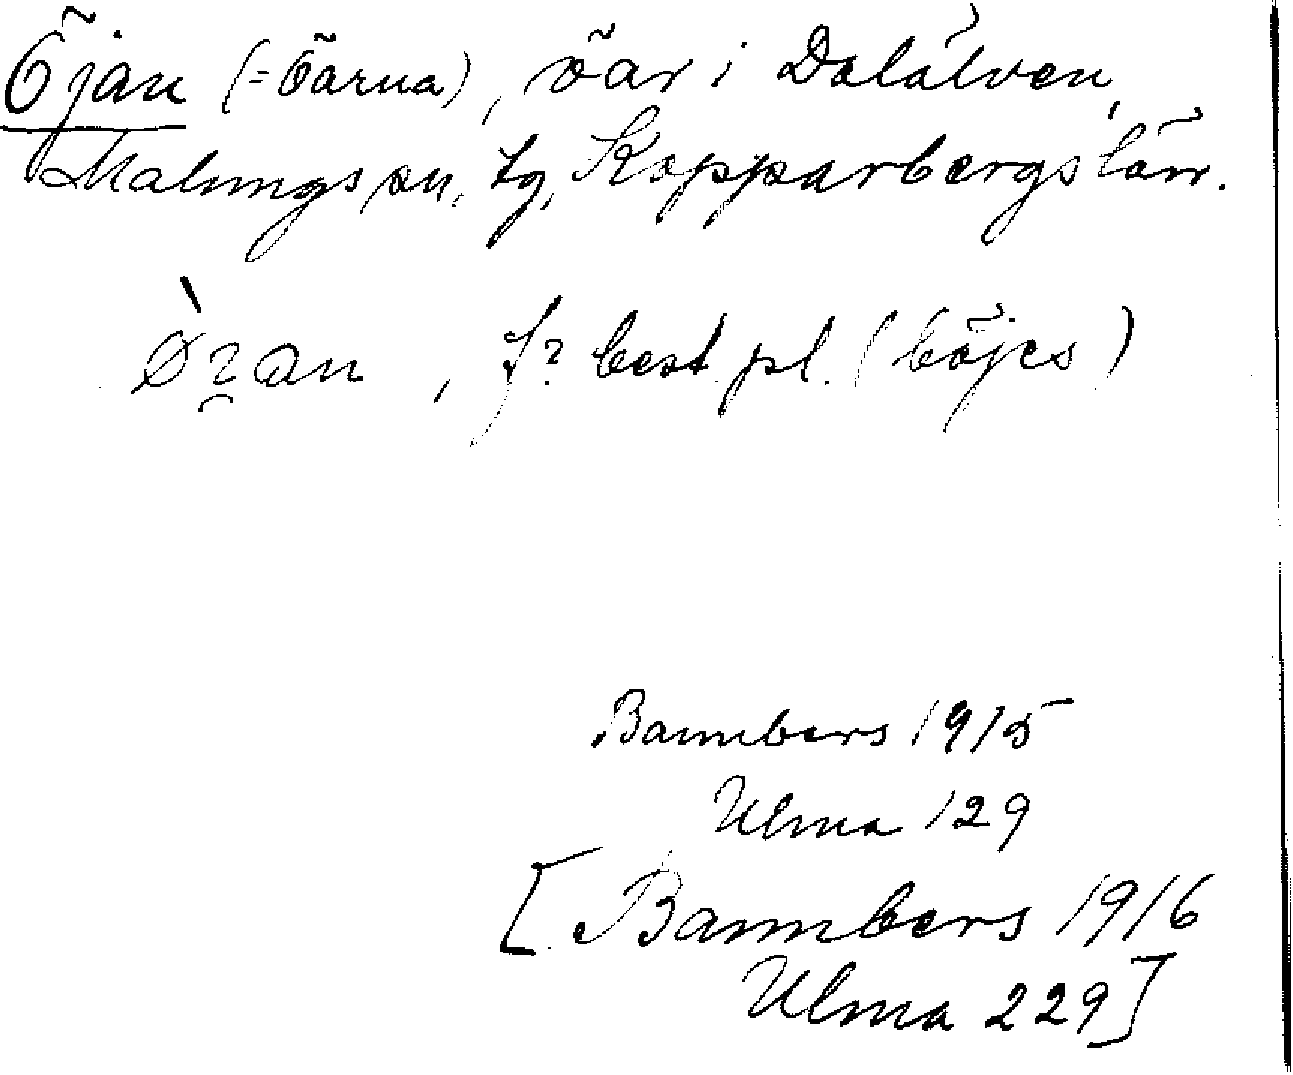 Öjan (= öarna), öar i Dalälven,
Malungs sn, tg, Kopparbergs län.
f? best. pl. (böjes)
Bannbers 1915
Ulma 129
[Bannbers 1916
Ulma 229]